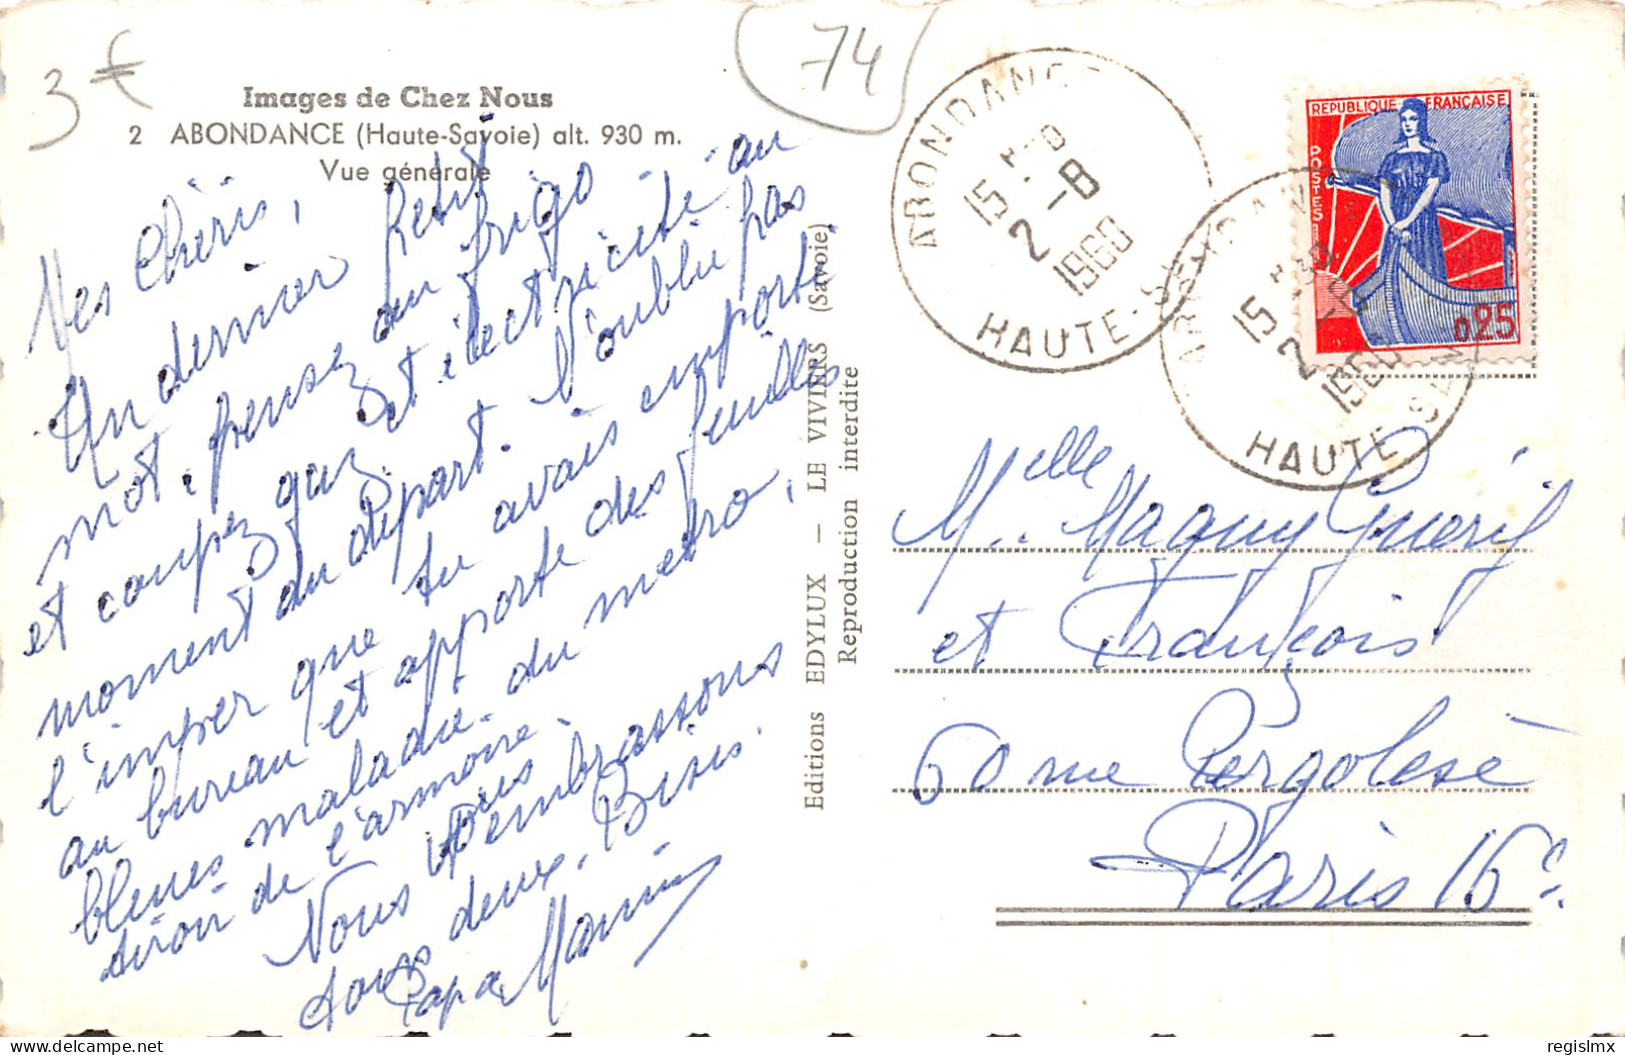 3 €
74
Images de Chez Nous
2 ABONDANCE (Haute-Savoie) alt. 930 m.
Vue générale
Mes Chéris,
Un dernier petit
mot, pensez au frigo
et coupez gaz et électricité au
moment du départ. N'oublie pas
l'imper que tu avais emporté
au bureau et apporte des feuilles
bleues maladie du metro,
tiroir de l'armoire
Nous vous embrassons
tous deux. Bises.
Papa Maman
Editions EDYLUX — LE VIVIERS (Savoie)
Reproduction interdite
ABONDANCE
15 H 30
2 - 8
1960
HAUTE-SAVOIE
REPUBLIQUE FRANÇAISE
POSTES
0,25
15
2
1960
HAUTE
Melle Maguy Gueril
et François
60 rue Pergolèse
Paris 16e
regislmx
Delcampe.net